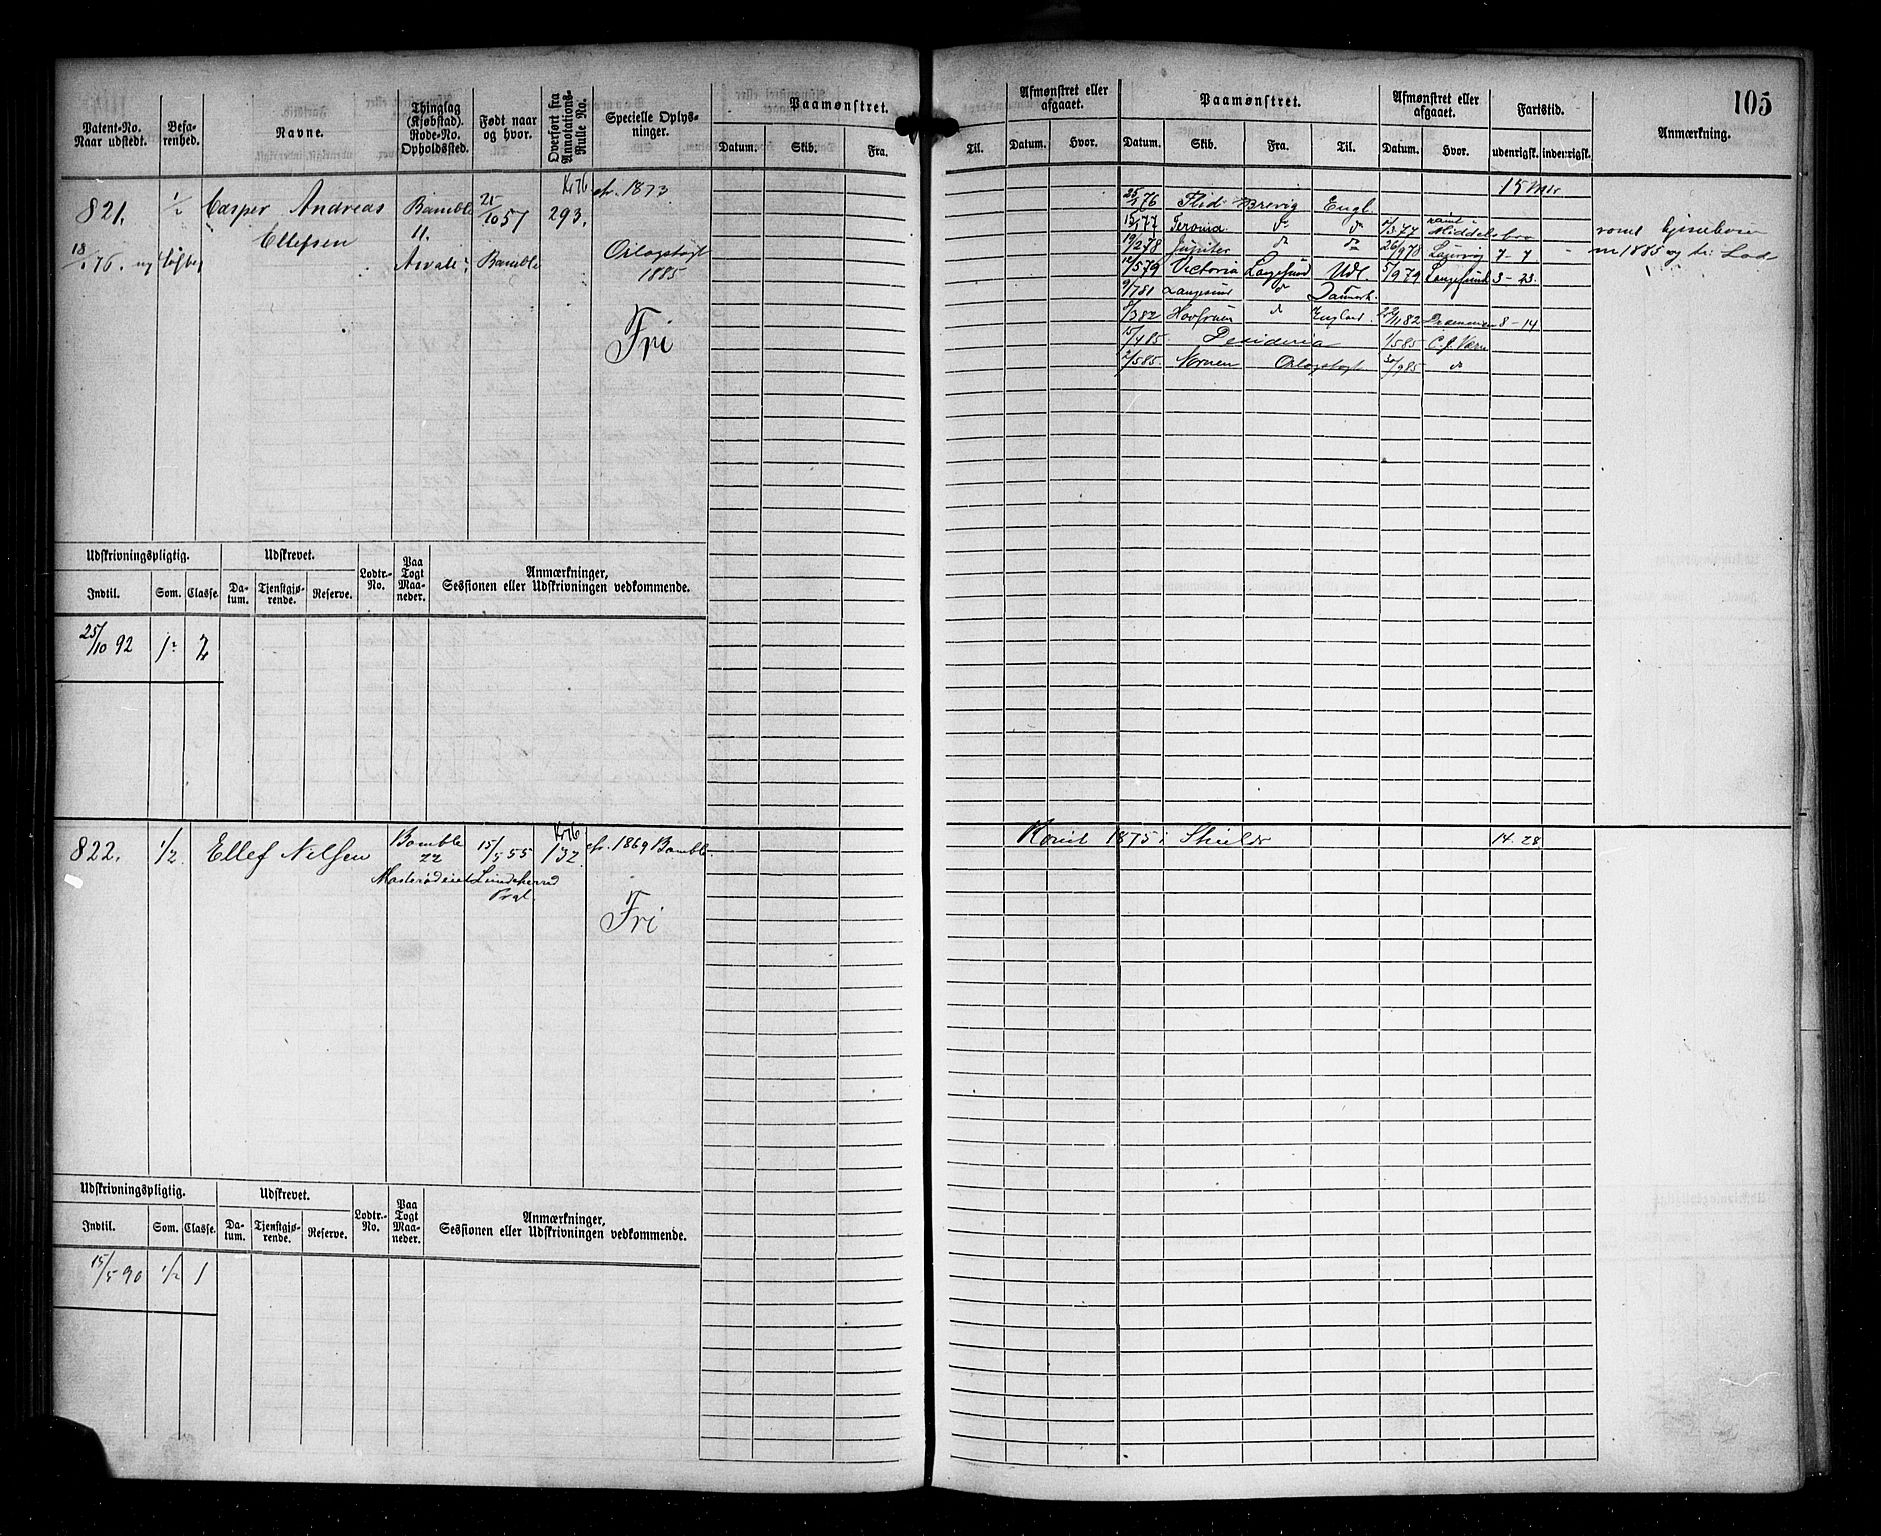 105
Patent-No. Naar udstedt.
Befarenhed.
Navne.
Thinglag (Kjøbstad). Rode-No. Opholdssted.
Født naar og hvor.
Overført fra Annotations-Rulle No.
Specielle Oplysninger.
Paamønstret.
Datum. Skib. Fra. Til.
Afmønstret eller afgaaet.
Datum. Hvor.
Paamønstret.
Datum. Skib. Fra. Til.
Afmønstret eller afgaaet.
Datum. Hvor.
Fartstid.
udenrigsk. indenrigsk.
Anmærkning.
821. 1/2 Casper Andreas Bamble 25/10 57 Kr 76 293. cfr. 1873
Ellefsen 11.
18/1 76. Bamble Orlogstogt
1885
Fri
15 Mdr
25/1 76 Brevig Engl.
15/1 77 do do 1/3 77
19/2 78 Jupiter do do 26/9 78 Laurvig 7-7
12/5 79 Victoria Langesund Udl. 5/9 79 Langesund 3-23
9/7 81 Langesund do Danmark
8/3 82 do England 8-14
15/4 85 Desideria 1/5 85 C. J. Værn
2/5 85 Nornen Orlogstogt 30/9 85 do
m 1885 og
Udskrivningspligtig. Udskrevet. Lodtr.-No. Paa Togt Maaneder. Anmærkninger, Sessionen eller Udskrivningen vedkommende.
Indtil. Som. Classe. Datum. Tjenstgjørende. Reserve.
25/10 92 1/2
822. 1/2 Ellef Nilsen Bamble 15/5 55 Kr 76 132 cfr. 1869 Bamble.
22
Lundeherred
Prgl.
Fri
1875 14.28
Udskrivningspligtig. Udskrevet. Lodtr.-No. Paa Togt Maaneder. Anmærkninger, Sessionen eller Udskrivningen vedkommende.
Indtil. Som. Classe. Datum. Tjenstgjørende. Reserve.
15/5 90 1/2 1